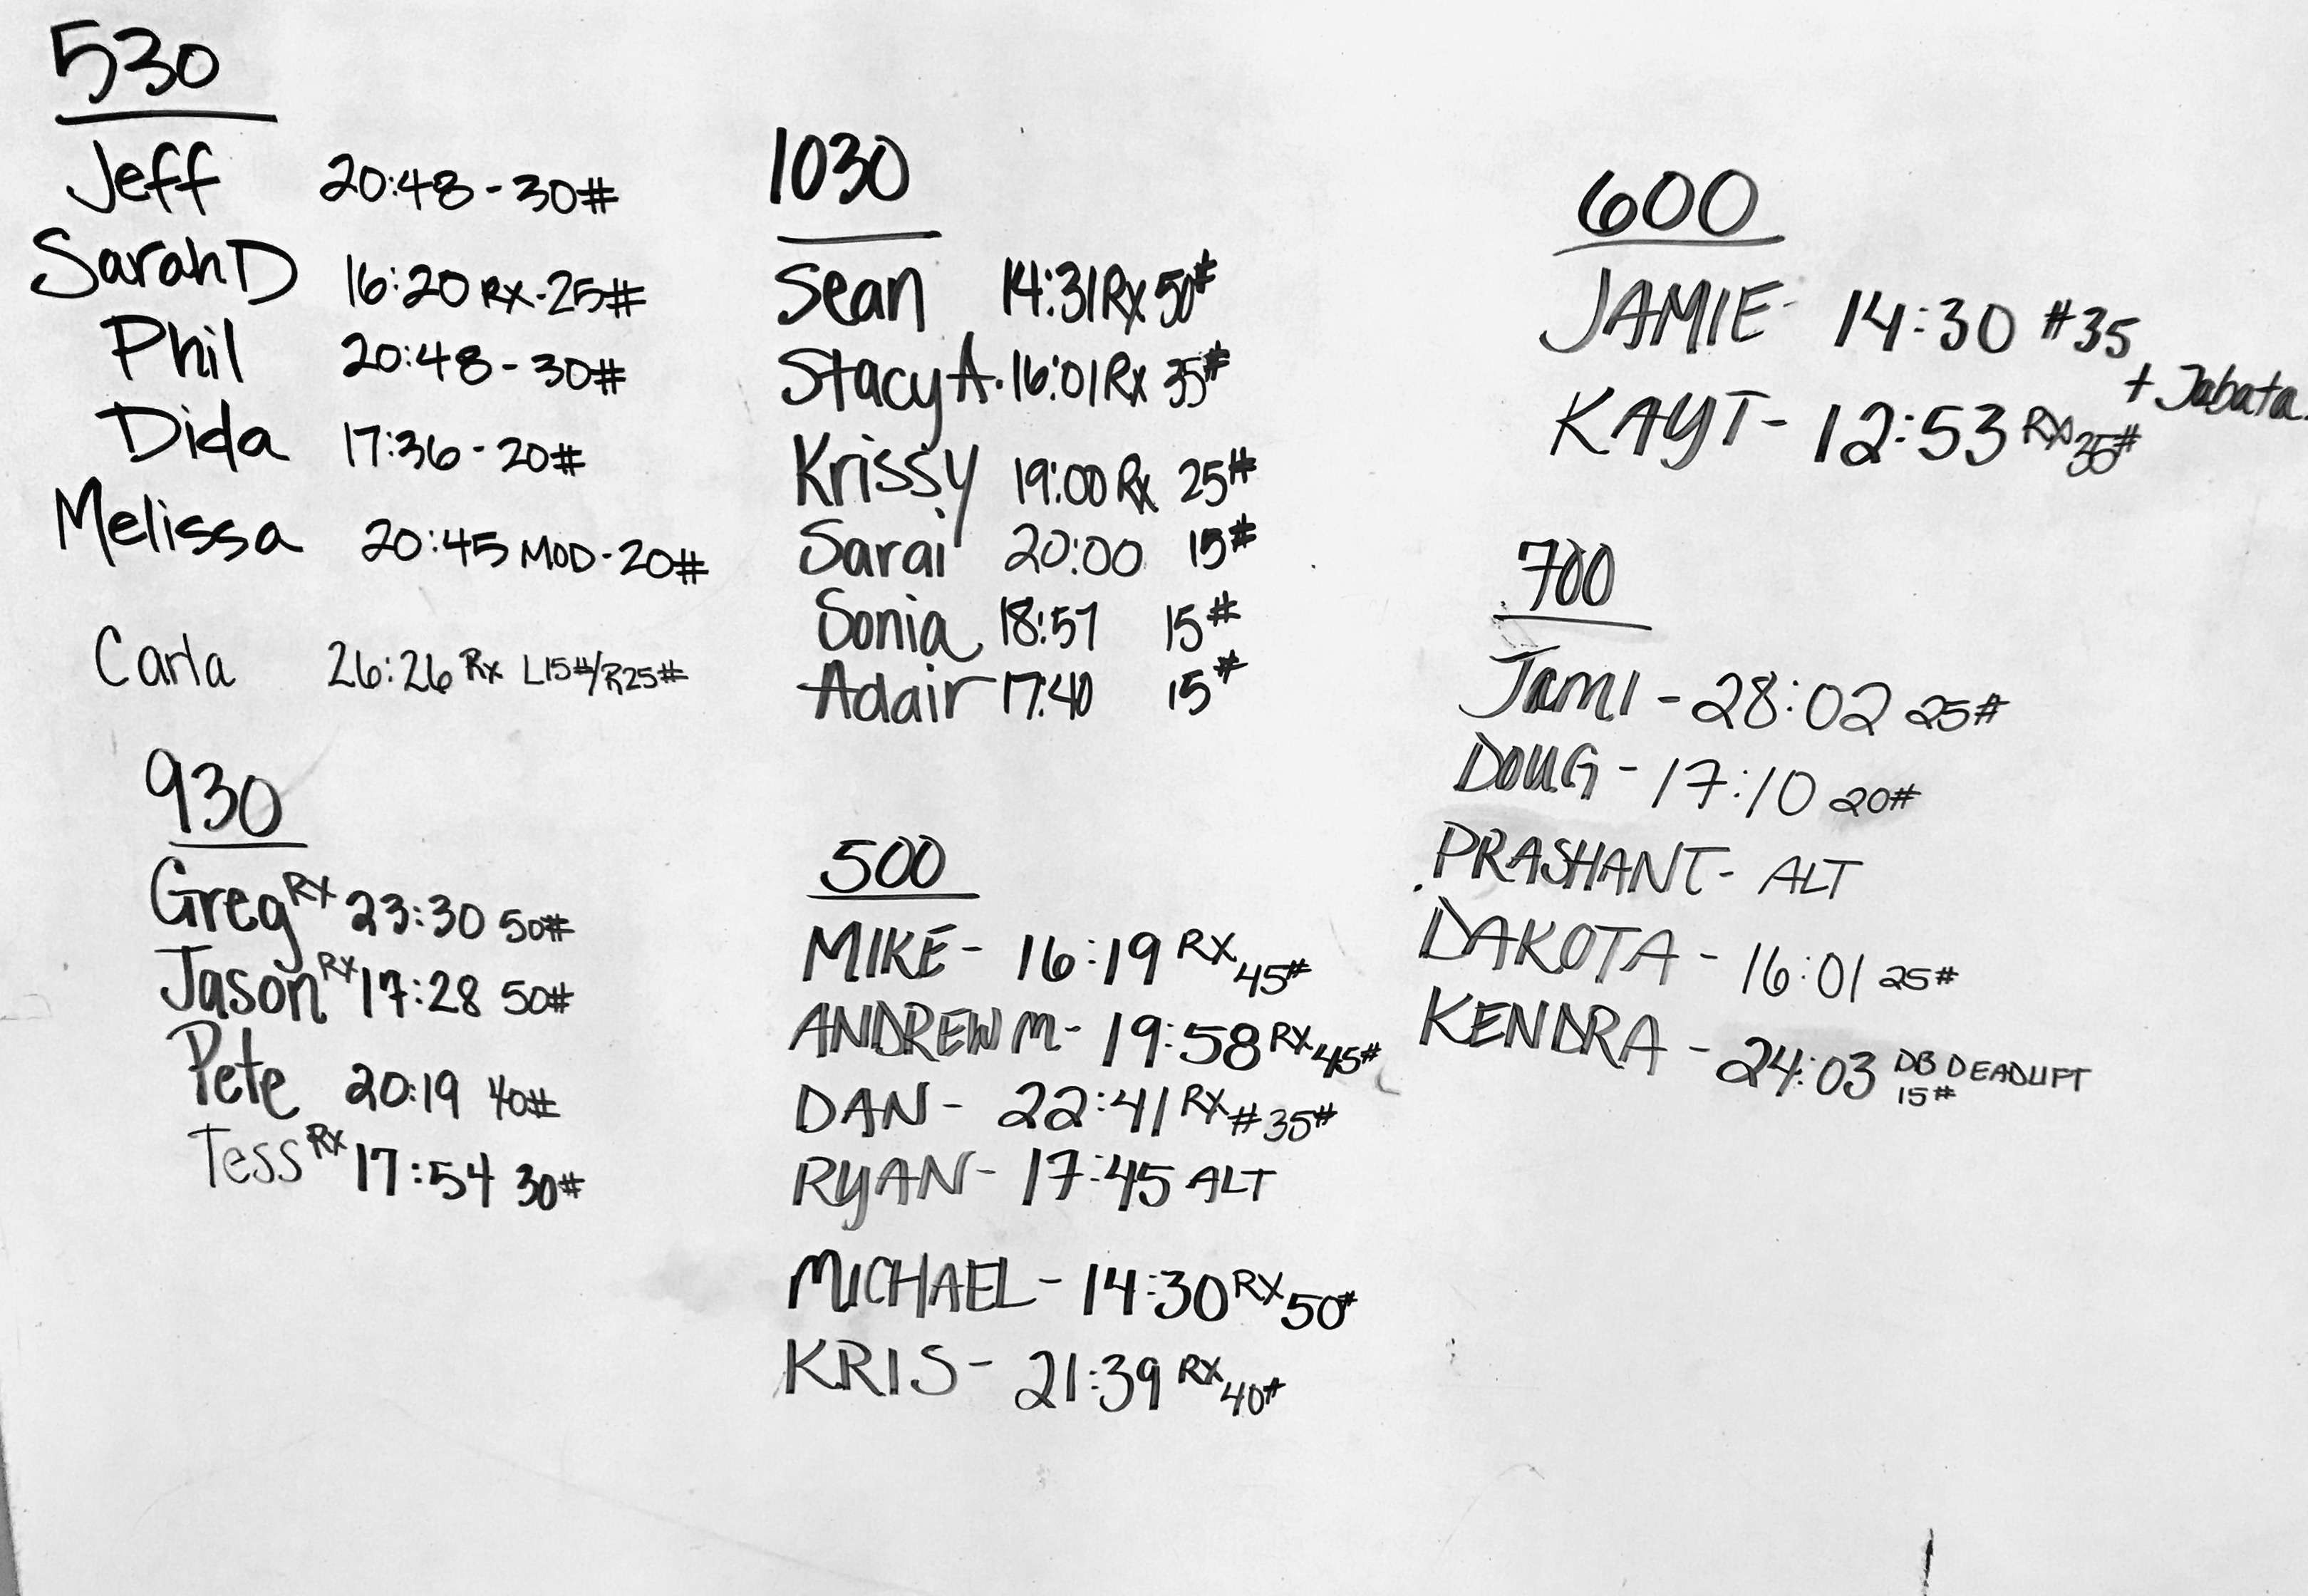 530
Jeff 20:48 - 30#
Sarah D 16:20 RX - 25#
Phil 20:48 - 30#
Dida 17:36 - 20#
Melissa 20:45 MOD - 20#
Carla 26:26 Rx L15#/R25#
930
Greg RX 23:30 50#
Jason RX 17:28 50#
Pete 20:19 40#
Tess RX 17:54 30#
1030
Sean 14:31 Rx 50#
Stacy A. 16:01 Rx 35#
Krissy 19:00 Rx 25#
Sarai 20:00 15#
Sonia 18:57 15#
Adair 17:40 15#
500
MIKE - 16:19 RX 45#
ANDREW M - 19:58 RX 45#
DAN - 22:41 RX #35#
RYAN - 17:45 ALT
MICHAEL - 14:30 RX 50#
KRIS - 21:39 RX 40#
600
JAMIE - 14:30 #35
+ Tabata.
KAYT - 12:53 RX 35#
700
JAMI - 28:02 25#
DOUG - 17:10 20#
PRASHANT - ALT
DAKOTA - 16:01 25#
KENDRA - 24:03 DB DEADLIFT
15#